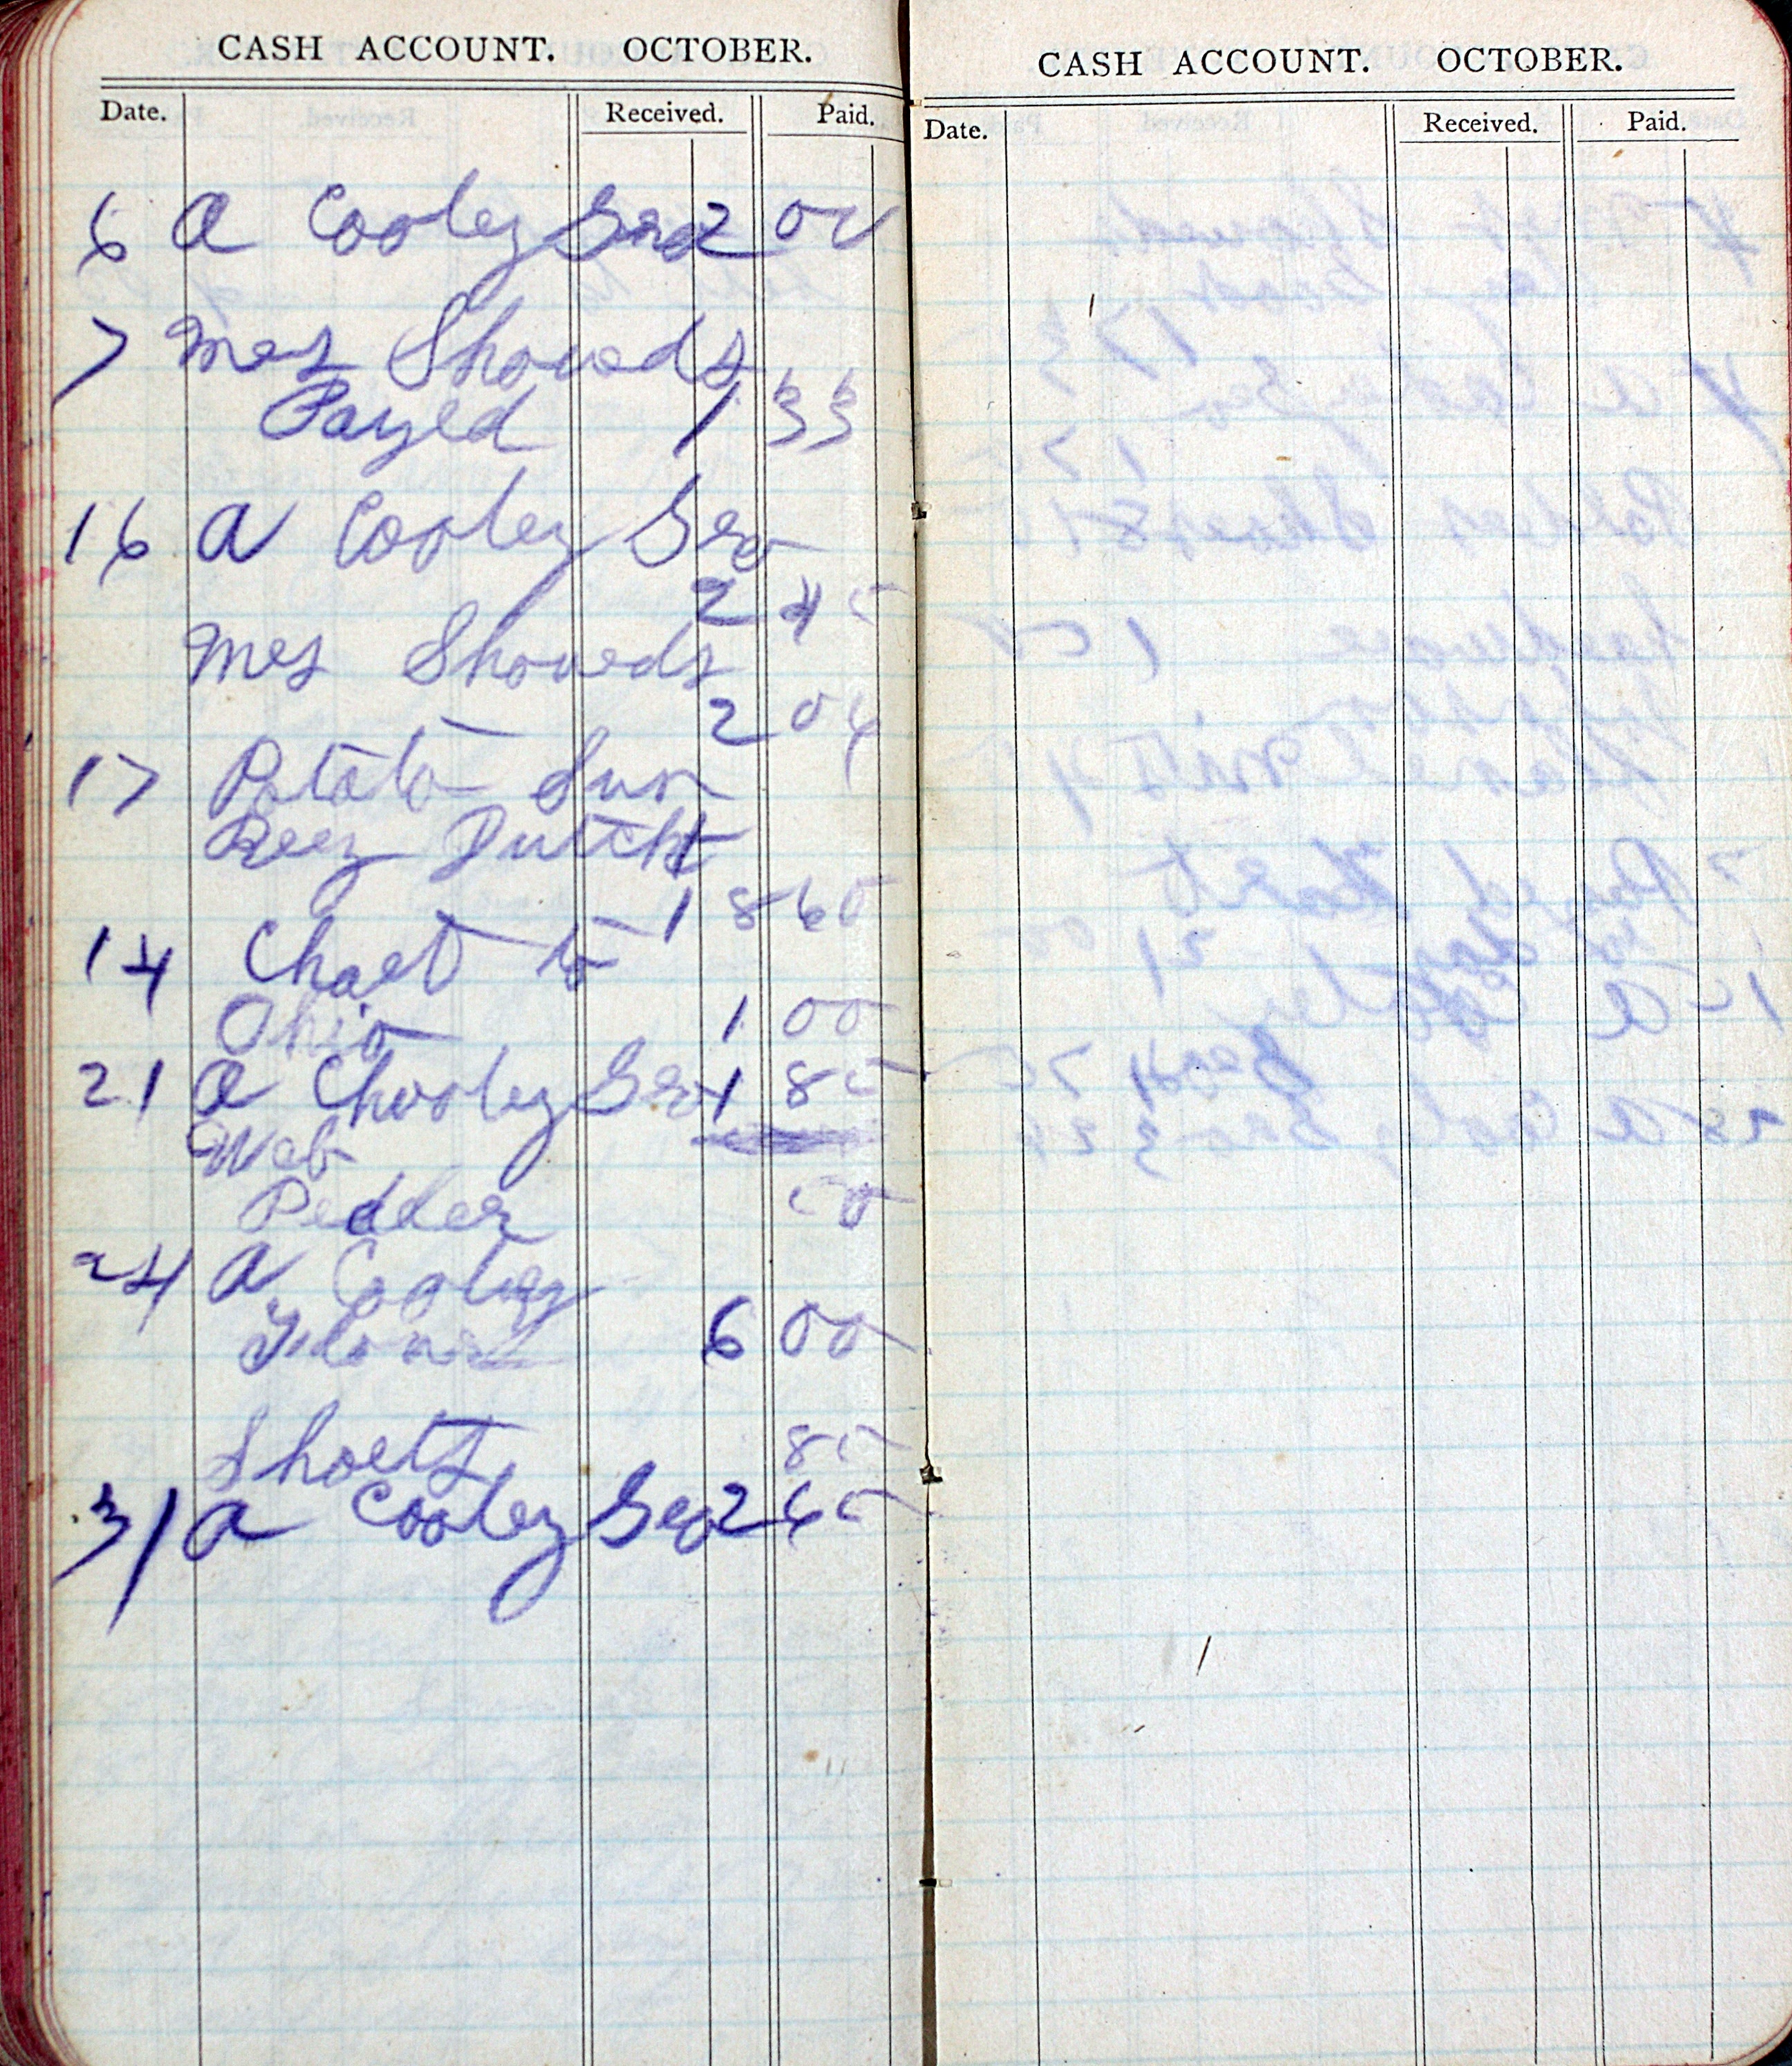 CASH ACCOUNT. OCTOBER.
Date. Received. Paid.
6 a Cooley Gro 2 00
7 Mrs Showeds
Payed 1 33
16 a Cooley Gro
2 45
Mrs Showeds
2 04
17 Potato
Dutch
18 60
14 to
Ohio 1 00
21 a Chooley Gro 1 85
Web
Pedder 50
24 a Cooley
6 00
85
31 a Cooley Gro 2 65
CASH ACCOUNT. OCTOBER.
Date. Received. Paid.